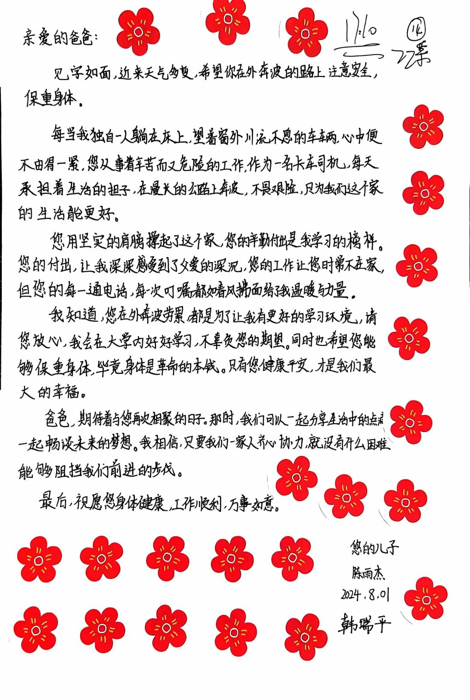 亲爱的爸爸:
17.10
22票
见字如面,近来天气多变,希望你在外奔波的路上注意安全,
保重身体。
每当我独自一人躺在床上,望着窗外川流不息的车辆,心中便
不由有一紧,您从事着辛苦而又危险的工作,作为一名卡车司机,每天
承担着生活的担子,在漫长的公路上奔波,不畏艰险,只为我们这个家
的生活能更好。
您用坚实的肩膀撑起了这个家,您的辛勤付出是我学习的榜样。
您的付出,让我深深感受到了父爱的深沉,您的工作让您时常不在家,
但您的每一通电话,每次叮嘱都如春风拂面给了我温暖与力量。
我知道,您在外奔波劳累都是为了让我有更好的学习环境,请
您放心,我会在大学内好好学习,不辜负您的期望。同时也希望您能
够保重身体,毕竟身体是革命的本钱。只有您健康平安,才是我们最
大的幸福。
爸爸,期待着与您再次相聚的日子。那时,我们可以一起分享生活中的点点
一起畅谈未来的梦想。我相信,只要我们一家人齐心协力,就没有什么困难
能够阻挡我们前进的步伐。
最后,祝愿您身体健康,工作顺利,万事如意。
您的儿子
陈雨杰
2024.8.01
韩瑞平